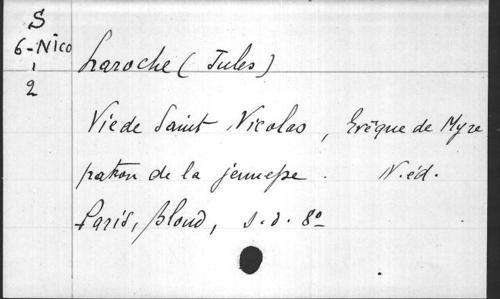 S
6-Nico
1
2
Laroche (Jules)
Vie de Saint Nicolas, Evêque de Myre
patron de la jeunesse. N.éd.
Paris, Bloud, s.d. 8º